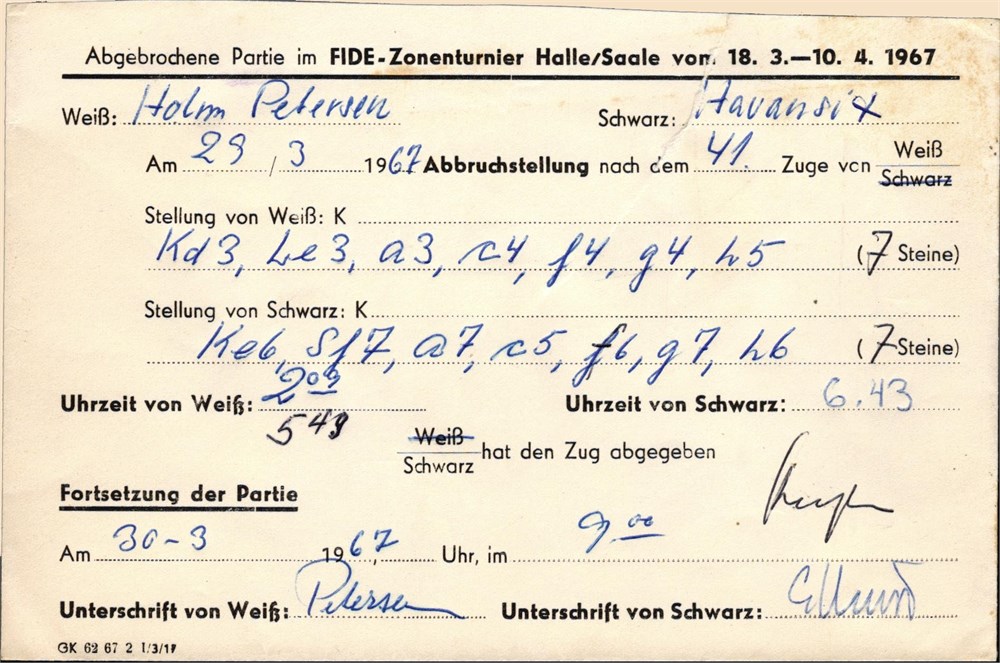 Abgebrochene Partie im FIDE-Zonenturnier Halle/Saale vom 18. 3.—10. 4. 1967
Weiß: Holm Petersen Schwarz: Havansi
Am 29 / 3 1967 Abbruchstellung nach dem 41. Zuge von Weiß
Schwarz
Stellung von Weiß: K
Kd3, Le3, a3, c4, f4, g4, h5 (7 Steine)
Stellung von Schwarz: K
Ke6, Sf7, a7, c5, f6, g7, h6 (7 Steine)
Uhrzeit von Weiß: 2 09 Uhrzeit von Schwarz: 6.43
5 49
Weiß
Schwarz hat den Zug abgegeben
Fortsetzung der Partie
Am 30-3 1967, Uhr, im 9 00
Unterschrift von Weiß: Petersen Unterschrift von Schwarz:
GK 62 67 2 1/3/17